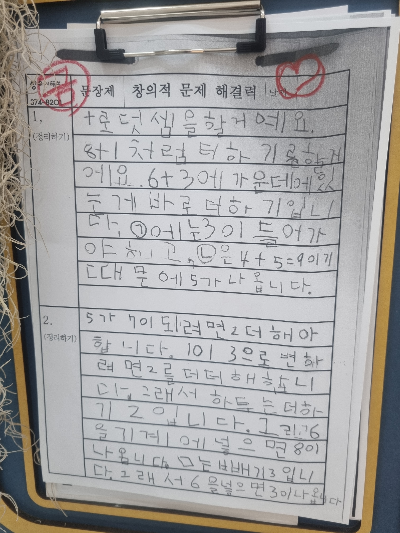 문장제 창의적 문제 해결력
374-8200
1.
(정리하기)
+로 덧셈을할거에요.
8+1처럼 더하기를할거
에요. 6+3에 가운데에
는게 바로 더하기입니
다. ㉠에는3이 들어가
야 하고, ㉡은 4+5=9이기
때문에 5가 나옵니다.
2.
(정리하기)
5가 7이 되려면 2더해야
합니다. 1이 3으로 변화
려면 2를 더
니
다. 그래서 하트는 더하
기 2입니다. 그리고 6
을 기계에 넣으면 8이
나옵니다. ㅁ는 빼기3입니
다. 그래서 6을넣으면 3이나옵니다